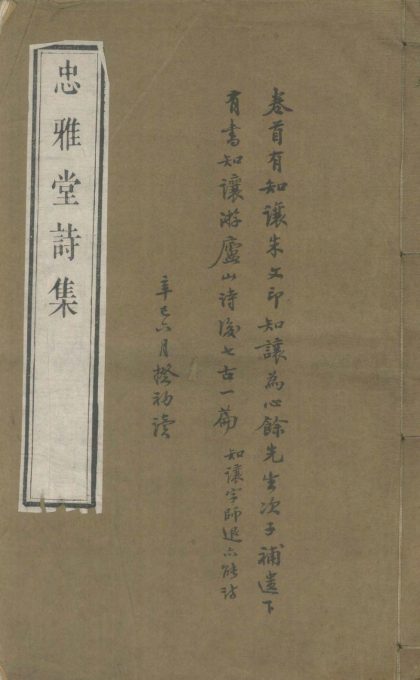 卷首有知讓朱文印知讓為心餘先生次子補遺下
有書知讓游廬山詩後七古一篇 知讓字師退亦能詩
辛巳六月揆初讀
忠雅堂詩集